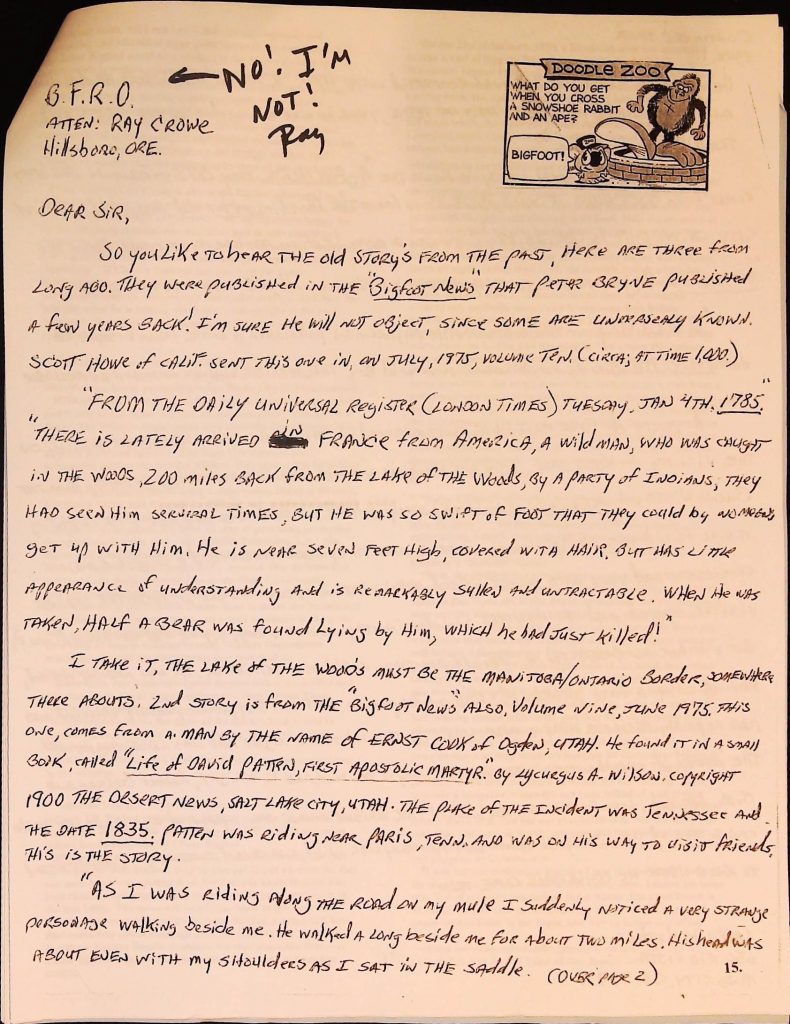 B.F.R.O.
ATTEN: RAY CROWE
Hillsboro, ORE.
NO! I'M
NOT!
Ray
DOODLE ZOO
WHAT DO YOU GET
WHEN YOU CROSS
A SNOWSHOE RABBIT
AND AN APE?
BIGFOOT!
DEAR SIR,
SO YOU LIKE TO HEAR THE OLD STORY'S FROM THE PAST, HERE ARE THREE FROM
LONG AGO. THEY WERE PUBLISHED IN THE "Bigfoot News" THAT PETER BRYNE PUBLISHED
A FEW YEARS BACK! I'M SURE HE WILL NOT OBJECT, SINCE SOME ARE KNOWN.
SCOTT HOWE OF CALIF. SENT THIS ONE IN, ON JULY, 1975, VOLUME TEN. (CIRCA; AT TIME 1,000.)
"FROM THE DAILY UNIVERSAL REGISTER (LONDON TIMES) TUESDAY, JAN 4TH. 1785."
"THERE IS LATELY ARRIVED IN FRANCE FROM AMERICA, A WILD MAN, WHO WAS CAUGHT
IN THE WOODS, 200 MILES BACK FROM THE LAKE OF THE WOODS, BY A PARTY OF INDIANS, THEY
HAD SEEN HIM SERVERAL TIMES, BUT HE WAS SO SWIFT OF FOOT THAT THEY COULD BY NO MEANS
GET UP WITH HIM. HE IS NEAR SEVEN FEET HIGH, COVERED WITH HAIR, BUT HAS LITTLE
APPEARANCE OF UNDERSTANDING AND IS REMARKABLY SULLEN AND UNTRACTABLE. WHEN HE WAS
TAKEN, HALF A BEAR WAS FOUND LYING BY HIM, WHICH HE HAD JUST KILLED!"
I TAKE IT, THE LAKE OF THE WOOD'S MUST BE THE MANITOBA/ONTARIO BORDER, SOMEWHERE
THERE ABOUTS. 2ND STORY IS FROM THE "Bigfoot News" ALSO. VOLUME NINE, JUNE 1975. THIS
ONE, COMES FROM A MAN BY THE NAME OF ERNST COOK OF OGDEN, UTAH. HE FOUND IT IN A SMALL
BOOK, CALLED "LIFE OF DAVID PATTEN, FIRST APOSTOLIC MARTYR." BY LYCURGUS A. WILSON. COPYRIGHT
1900 THE DESERT NEWS, SALT LAKE CITY, UTAH. THE PLACE OF THE INCIDENT WAS TENNESSEE AND
THE DATE 1835. PATTEN WAS RIDING NEAR PARIS, TENN. AND WAS ON HIS WAY TO VISIT FRIENDS,
THIS IS THE STORY.
"AS I WAS RIDING ALONG THE ROAD ON MY MULE I SUDDENLY NOTICED A VERY STRANGE
PERSONAGE WALKING BESIDE ME. HE WALKED A LONG BESIDE ME FOR ABOUT TWO MILES. HIS HEAD WAS
ABOUT EVEN WITH MY SHOULDERS AS I SAT IN THE SADDLE. (OVER PAGE 2)
15.